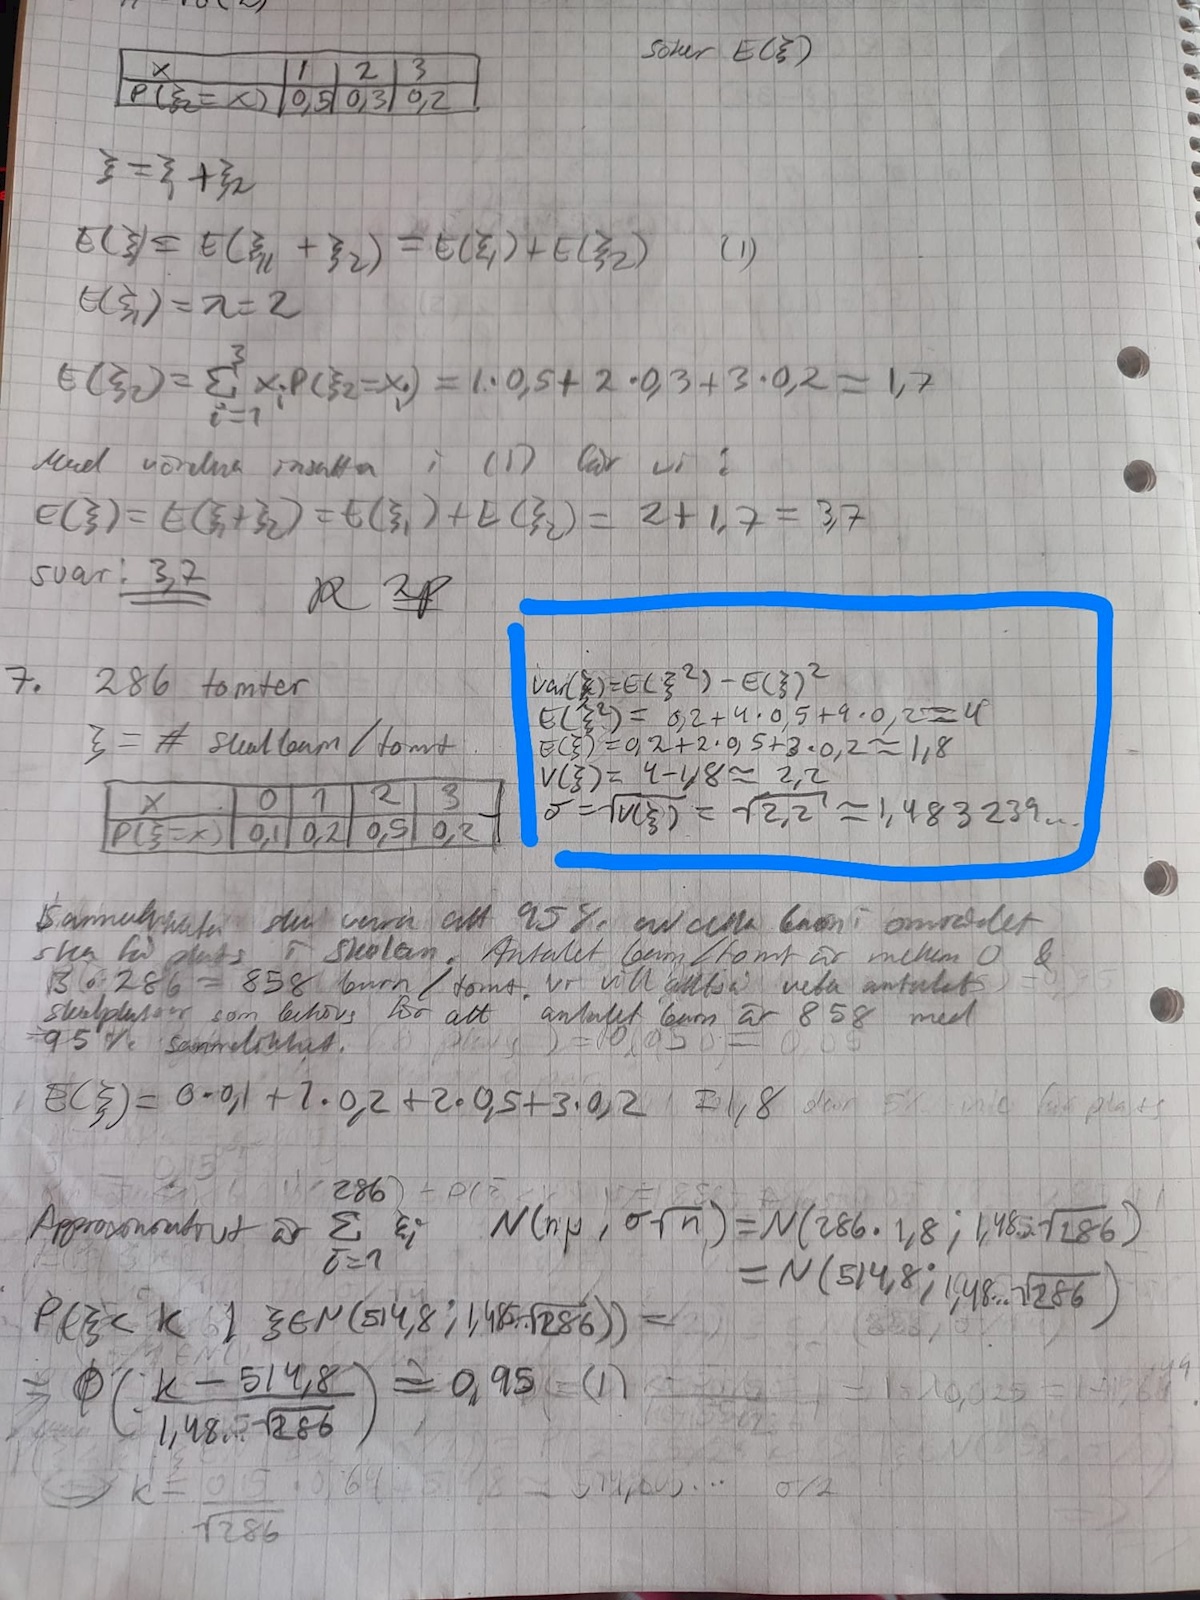 x 1 2 3
P(ξ₂=x) 0,5 0,3 0,2
söker E(ξ)
ξ = ξ₁ + ξ₂
E(ξ) = E(ξ₁ + ξ₂) = E(ξ₁) + E(ξ₂) (1)
E(ξ₁) = λ = 2
E(ξ₂) = Σ³ᵢ₌₁ xᵢP(ξ₂=xᵢ) = 1·0,5 + 2·0,3 + 3·0,2 = 1,7
Med värdena insatta i (1) får vi:
E(ξ) = E(ξ₁+ξ₂) = E(ξ₁) + E(ξ₂) = 2+1,7 = 3,7
svar: 3,7 R 2p
7. 286 tomter
ξ = # skolbarn/tomt
x 0 1 2 3
P(ξ=x) 0,1 0,2 0,5 0,2
var(ξ)=E(ξ²) – E(ξ)²
E(ξ²) = 0,2+4·0,5+9·0,2=4
E(ξ)=0,2+2·0,5+3·0,2=1,8
V(ξ)= 4-1,8 = 2,2
σ = √V(ξ) = √2,2 = 1,483239...
Sannolikheten ska vara att 95% av alla barn i området
ska få plats i skolan. Antalet barn/tomt är mellan 0 &
3·286 = 858 barn/tomt. vi vill alltså veta antalet
skolplatser som behövs för att antalet barn är 858 med
95% sannolikhet.
E(ξ) = 0·0,1 + 1·0,2 + 2·0,5 + 3·0,2 = 1,8
Approximativt är Σ²⁸⁶ᵢ₌₁ ξᵢ N(nμ, σ√n) = N(286·1,8; 1,48..√286)
= N(514,8; 1,48...√286)
P(ξ < k | ξ∈N(514,8; 1,48..√286)) =
= Φ((k – 514,8)/(1,48...√286)) = 0,95 (1)
⇔ k =
√286
σ/2